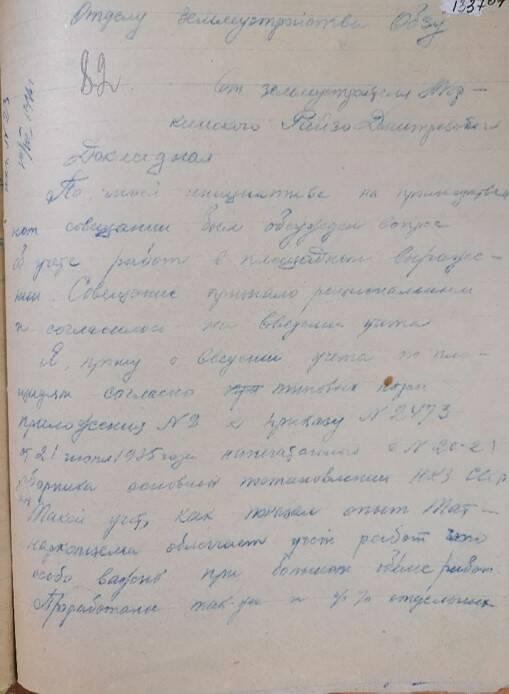 133704
Отделу землеустройства ОблЗУ
82.
От землеустроителя Мор-
кинского Райзо Дмитровского
Докладная
По моей инициативе на производствен
ном совещании был обсужден вопрос
об учете работ в площадном выражес-
нии. Совещание признало рациональным
и согласилось на введение учета
Я, прошу о введении учета по пло-
щадям согласно типовых норм
приложения № 2 к приказу № 2473
от 21 июля 1935 года напечатанного в № 20-21
сборника основных постановлений НКЗ СССР
Такой учет, как показал опыт
облегчает учет работ что
особо важно при большом объеме работ.
Проработаны так-же и отдельных